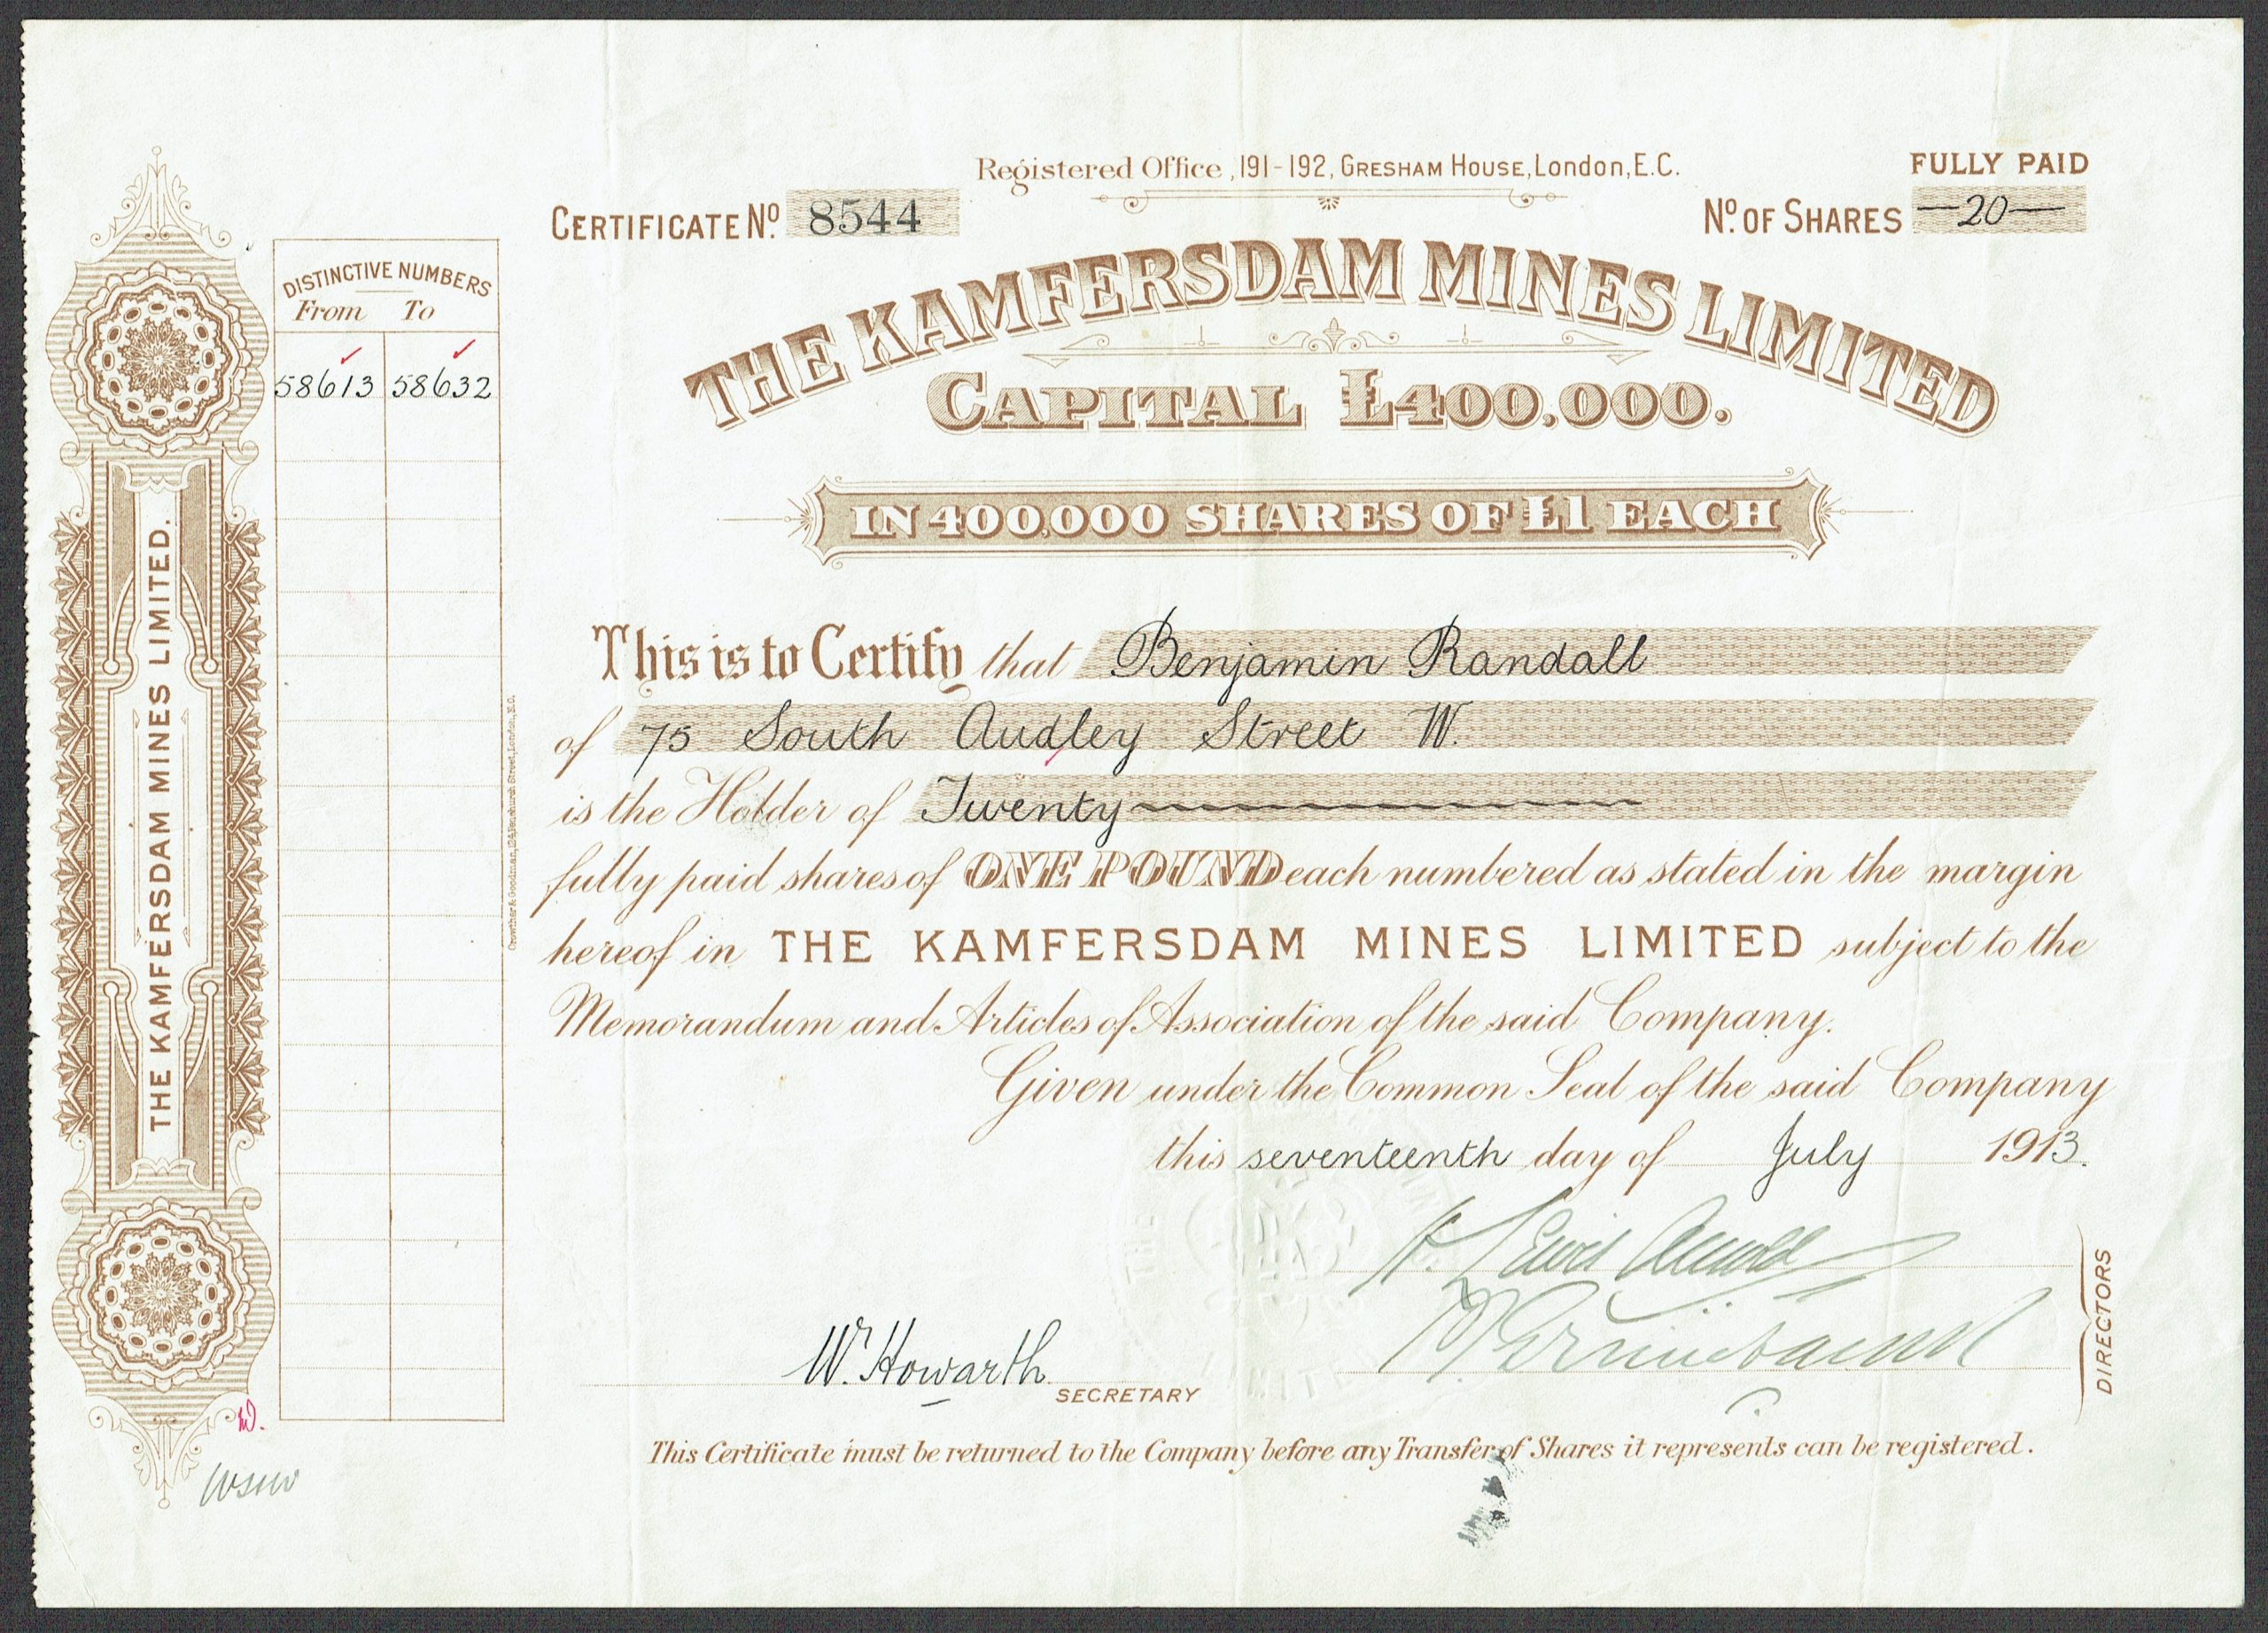 Registered Office, 191-192, GRESHAM HOUSE, London, E.C.
FULLY PAID
CERTIFICATE Nº 8544
Nº OF SHARES —20—
THE KAMFERSDAM MINES LIMITED
CAPITAL £400,000.
IN 400,000 SHARES OF £1 EACH
DISTINCTIVE NUMBERS
From To
58613 58632
THE KAMFERSDAM MINES LIMITED.
This is to Certify that Benjamin Randall
of 75 South Audley Street W.
is the Holder of Twenty
fully paid shares of ONE POUND each numbered as stated in the margin
hereof in THE KAMFERSDAM MINES LIMITED subject to the
Memorandum and Articles of Association of the said Company.
Given under the Common Seal of the said Company
this seventeenth day of July 1913.
W. Howarth
SECRETARY
DIRECTORS
This Certificate must be returned to the Company before any Transfer of Shares it represents can be registered.